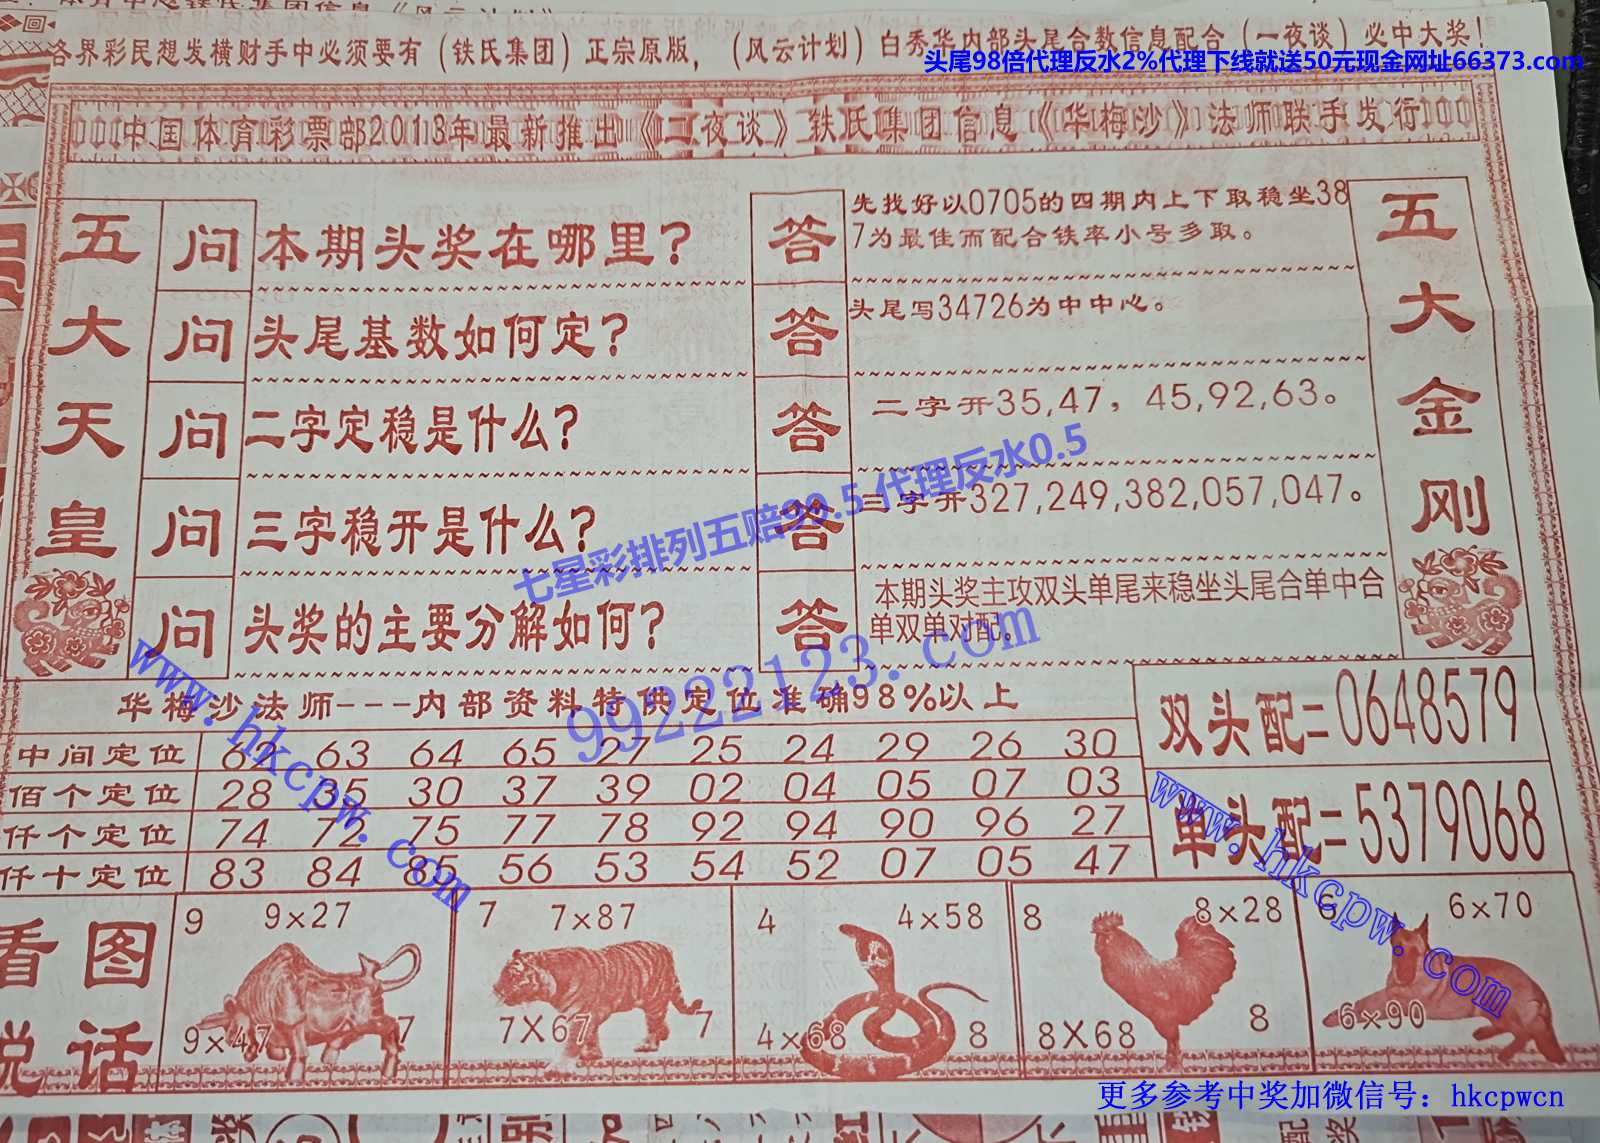 各界彩民想发横财手中必须要有（铁氏集团）正宗原版，（风云计划）白秀华内部头尾合数信息配合（一夜谈）必中大奖！
头尾98倍代理反水2%代理下线就送50元现金网址66373.com
中国体育彩票部2013年最新推出《一夜谈》铁氏集团信息《华梅沙》法师联手发行
五大天皇
问 本期头奖在哪里？
答 先找好以0705的四期内上下取稳坐38
7为最佳而配合铁率小号多取。
问 头尾基数如何定？
答 头尾写34726为中中心。
问 二字定稳是什么？
答 二字开35,47，45,92,63。
问 三字稳开是什么？
答 三字开327,249,382,057,047。
问 头奖的主要分解如何？
答 本期头奖主攻双头单尾来稳坐头尾合单中合
单双单对配。
五大金刚
七星彩排列五赔99.5代理反水0.5
99222123.com
www.hkcpw.com
华梅沙法师---内部资料特供定位准确98%以上
中间定位 62 63 64 65 27 25 24 29 26 30
佰个定位 28 35 30 37 39 02 04 05 07 03
仟个定位 74 72 75 77 78 92 94 90 96 27
仟十定位 83 84 85 56 53 54 52 07 05 47
双头配=0648579
单头配=5379068
www.hkcpw.com
看图
说话
9 9×27
9×47 7
7 7×87
7X67 7
4 4×58
4×68 8
8 8×28
8X68 8
6 6×70
6×90
更多参考中奖加微信号：hkcpwcn